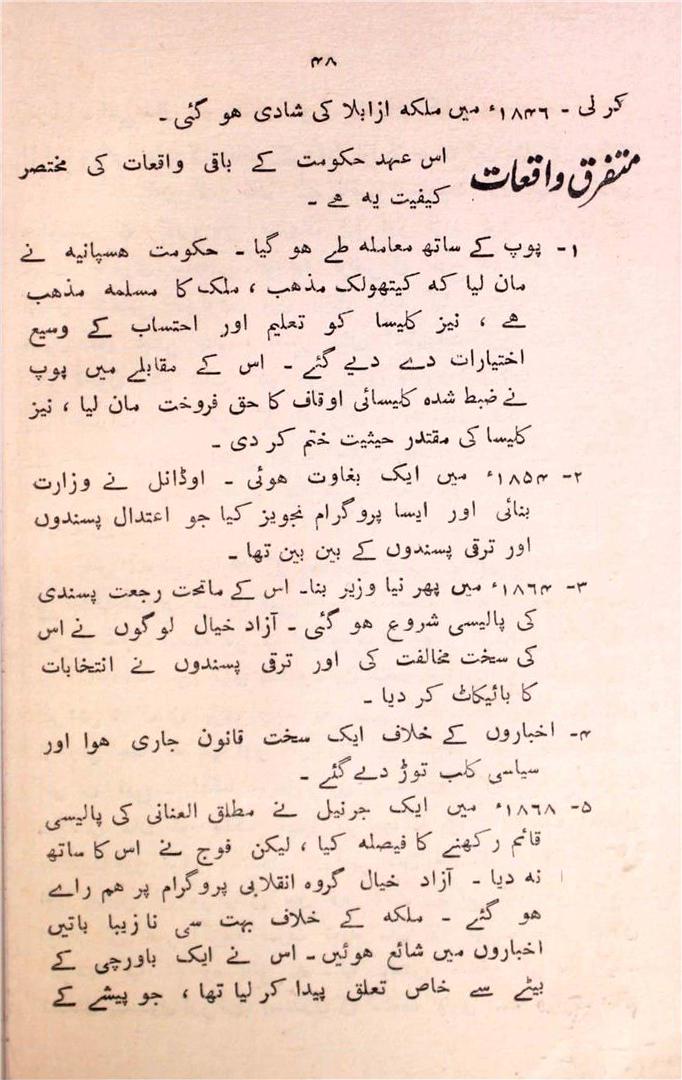 ۴۸
کر لی ۔ ۱۸۴۶ء میں ملکه ازابلا کی شادی هو گئی ۔
متفرق واقعات
اس عہد حکومت کے باقی واقعات کی مختصر
کیفیت یه هے ۔
۱- پوپ کے ساتھ معامله طے هو گیا ۔ حکومت هسپانیه نے
مان لیا که کیتھولک مذهب ، ملک کا مسلمه مذهب
هے ، نیز کلیسا کو تعلیم اور احتساب کے وسیع
اختیارات دے دیے گئے ۔ اس کے مقابلے میں پوپ
نے ضبط شده کلیسائی اوقاف کا حق فروخت مان لیا ، نیز
کلیسا کی مقتدر حیثیت ختم کر دی ۔
۲- ۱۸۵۴ء میں ایک بغاوت هوئی ۔ اوڈانل نے وزارت
بنائی اور ایسا پروگرام تجویز کیا جو اعتدال پسندوں
اور ترقی پسندوں کے بین بین تھا ۔
۳- ۱۸۶۴ء میں پھر نیا وزیر بنا۔ اس کے ماتحت رجعت پسندی
کی پالیسی شروع هو گئی ۔ آزاد خیال لوگوں نے اس
کی سخت مخالفت کی اور ترقی پسندوں نے انتخابات
کا بائیکاٹ کر دیا ۔
۴- اخباروں کے خلاف ایک سخت قانون جاری هوا اور
سیاسی کلب توڑ دیے گئے ۔
۵- ۱۸۶۸ء میں ایک جرنیل نے مطلق العنانی کی پالیسی
قائم رکھنے کا فیصله کیا ، لیکن فوج نے اس کا ساتھ
نه دیا ۔ آزاد خیال گروه انقلابی پروگرام پر هم راے
هو گئے ۔ ملکه کے خلاف بہت سی نازیبا باتیں
اخباروں میں شائع هوئیں ۔ اس نے ایک باورچی کے
بیٹے سے خاص تعلق پیدا کر لیا تھا ، جو پیشے کے